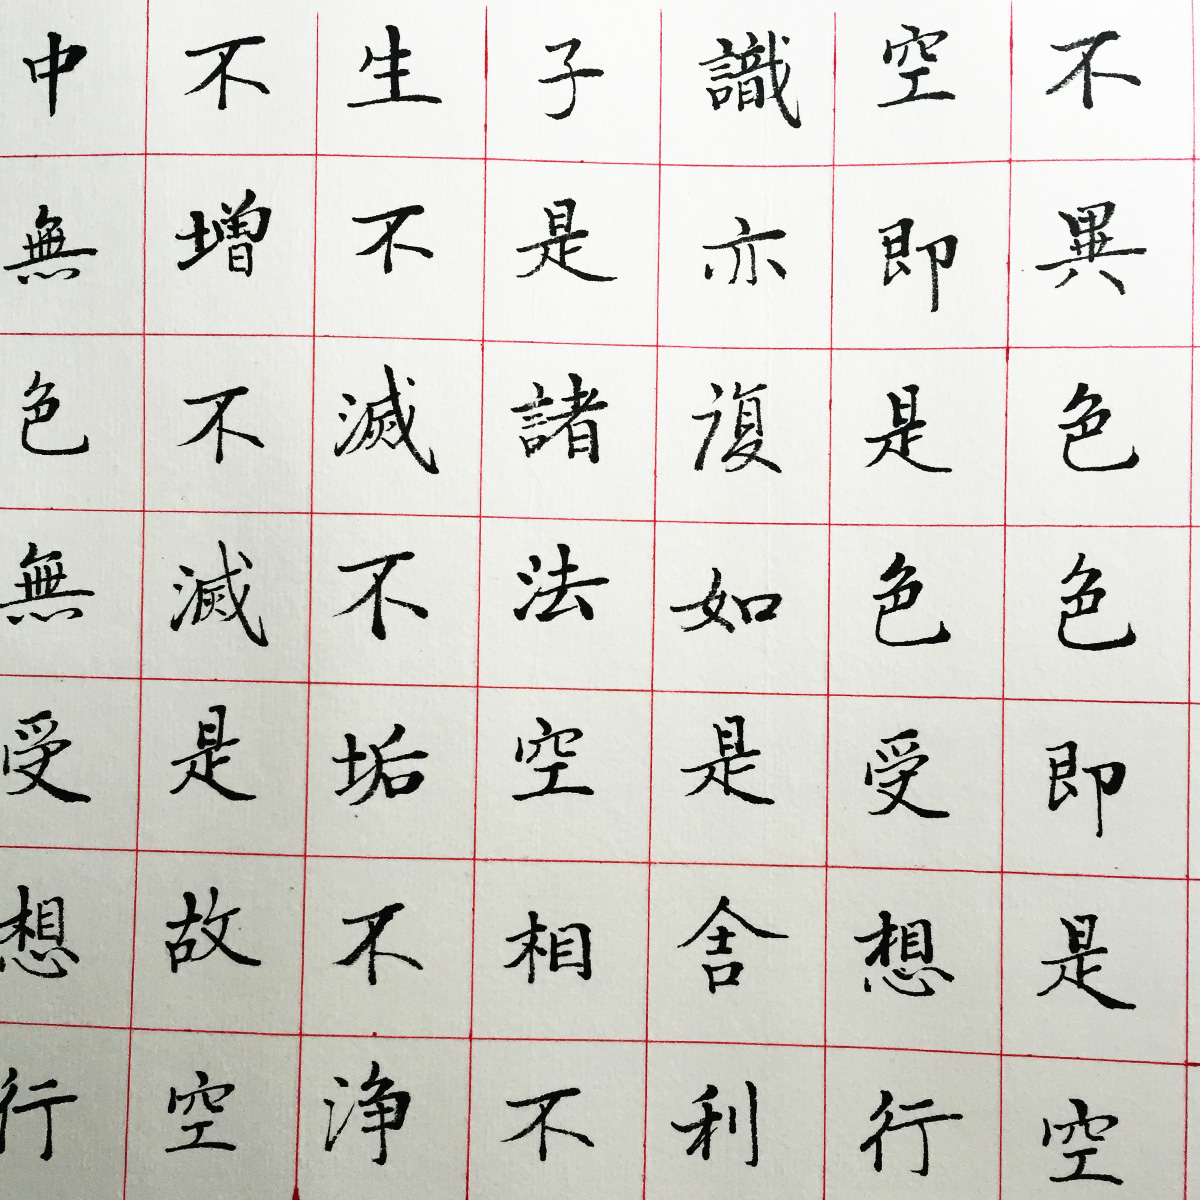 不異色色即是空
空即是色受想行
識亦復如是舍利
子是諸法空相不
生不滅不垢不淨
不增不滅是故空
中無色無受想行